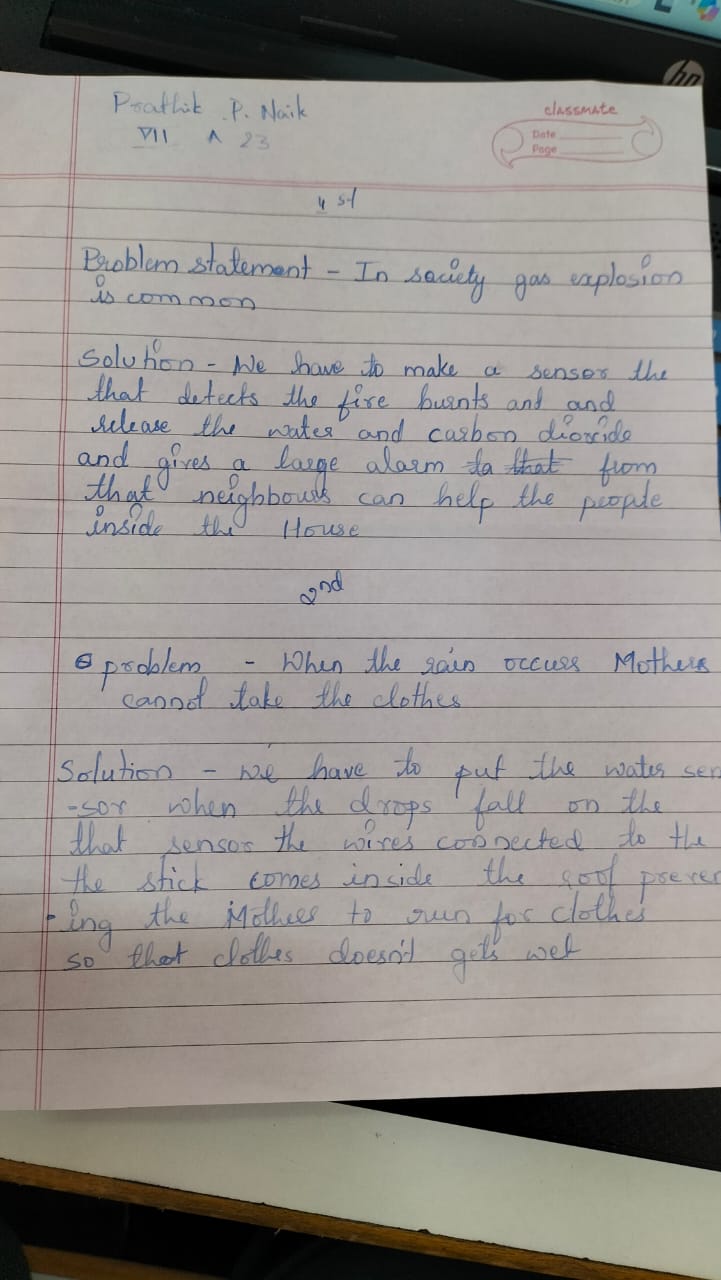 hp
Prathik P. Naik
VII A 23
classmate
Date
Page
1 st
Problem statement - In society gas explosion
is common
Solution - We have to make a sensor the
that detects the fire burnts and and
release the water and carbon dioxide
and gives a large alarm to that from
that neighbours can help the people
inside the House
2nd
problem - When the rain occurs Mothers
cannot take the clothes
Solution - we have to put the water sen
-sor when the drops fall on the
that sensor the wires connected to the
the stick comes inside the roof preven
-ing the Mothers to run for clothes
so that clothes doesn't gets wet